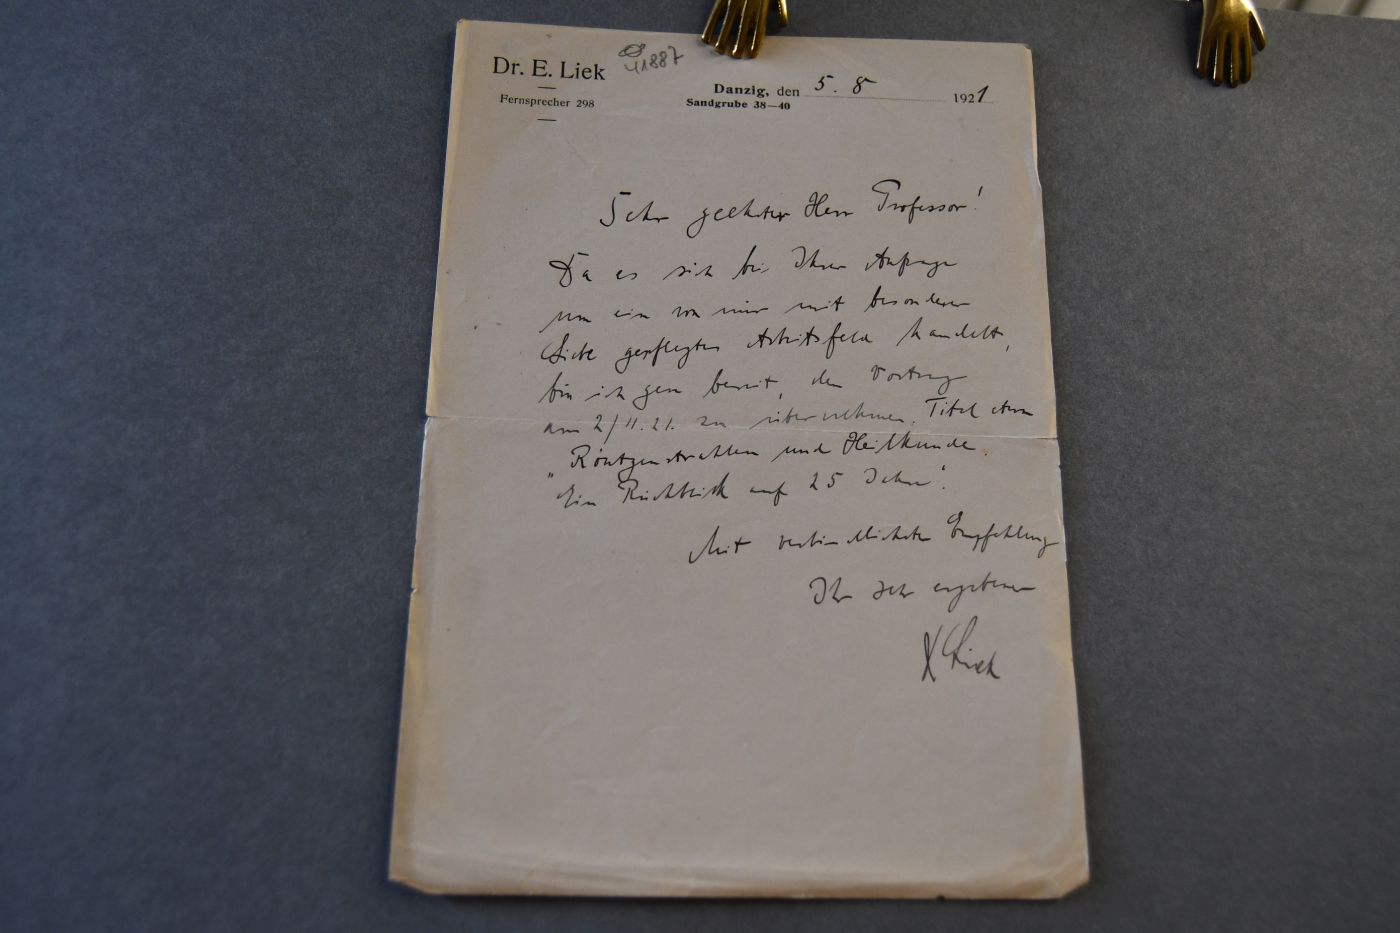 Dr. E. Liek
41887
Fernsprecher 298
Danzig, den 5. 8 1921
Sandgrube 38—40
Sehr geehrter Herr Professor!
Da es sich bei Ihrer Anfrage
um ein von mir mit besonderer
Liebe gepflegtes Arbeitsfeld handelt,
bin ich gern bereit, den Vortrag
am 2/11.21. zu übernehmen. Titel etwa
„Röntgenstrahlen und Heilkunde.
Ein Rückblick auf 25 Jahre“.
Mit verbindlichster Empfehlung
Ihr sehr ergebener
Liek